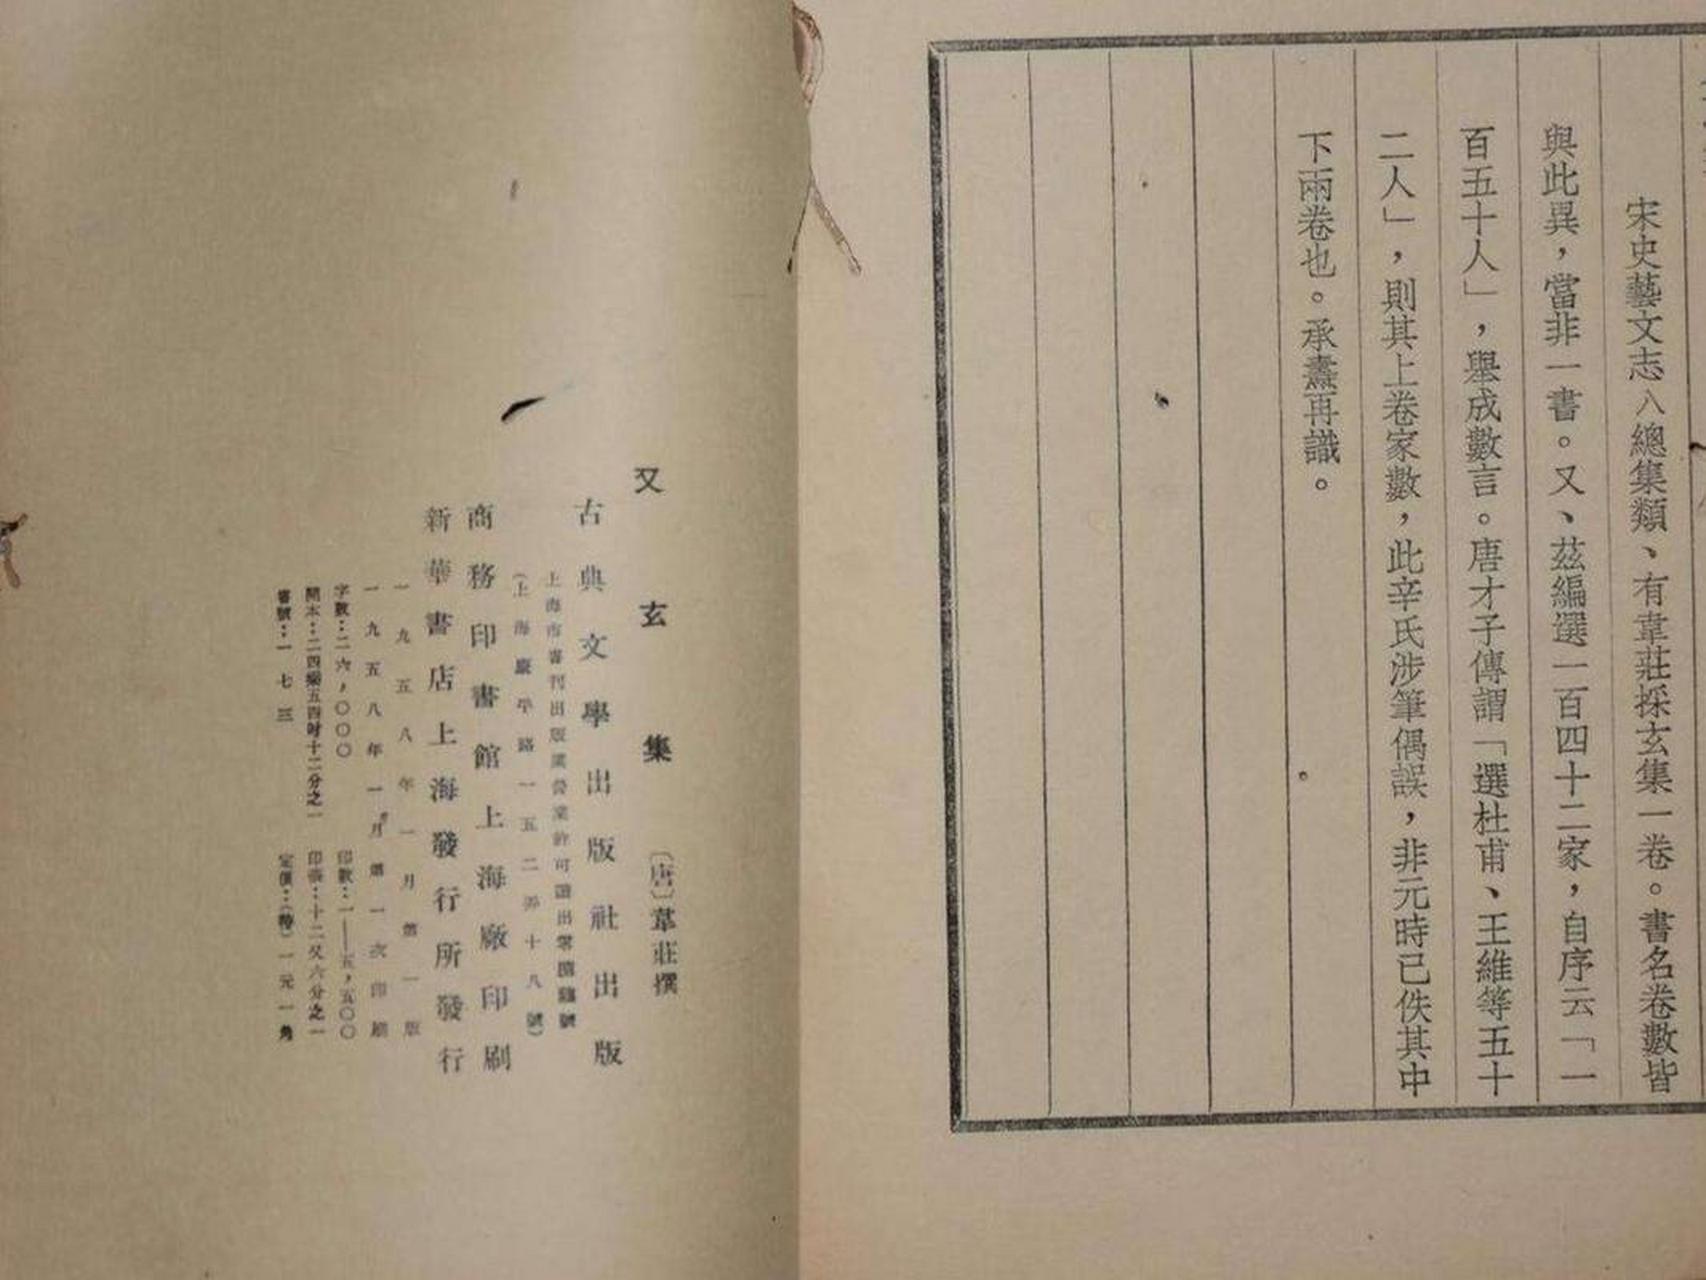 宋史藝文志八總集類、有韋莊採玄集一卷。書名卷數皆
與此異，當非一書。又、茲編選一百四十二家，自序云「一
百五十人」，舉成數言。唐才子傳謂「選杜甫、王維等五十
二人」，則其上卷家數，此辛氏涉筆偶誤，非元時已佚其中
下兩卷也。承燾再識。
又玄集
〔唐〕韋莊撰
古典文學出版社出版
上海市書刊出版業營業許可證出
（上海康平路一五二弄十八號）
商務印書館上海廠印刷
新華書店上海發行所發行
一九五八年一月第一版
一九五八年一月第一次印刷
字數：二六，〇〇〇 印數：一——五，五〇〇
開本：二四 五四吋十二分之一 印張：十二又六分之一
書號：一七三 定價：（特）一元一角